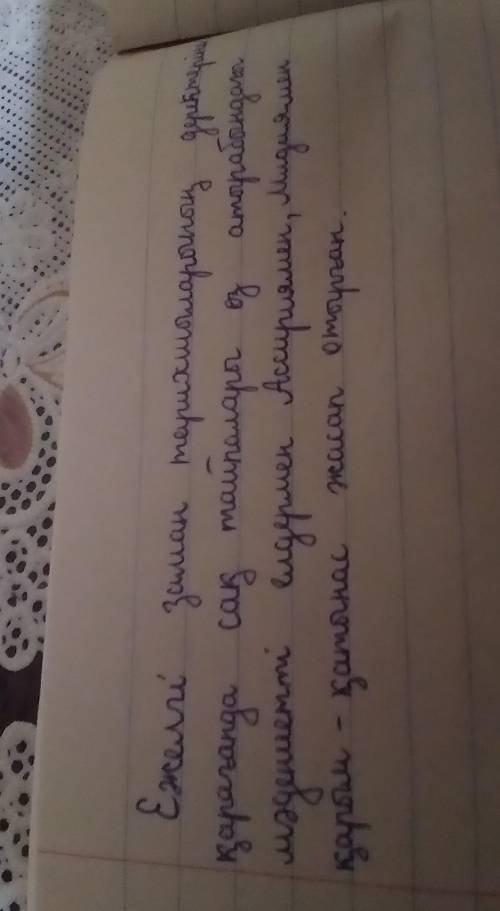 Ежелгі заман тарихшыларының деректеріне
қарағанда сақ тайпалары өз атырабындағы
мәдениетті елдермен Ассириямен, Мидиямен
қарым - қатынас жасап отырған.